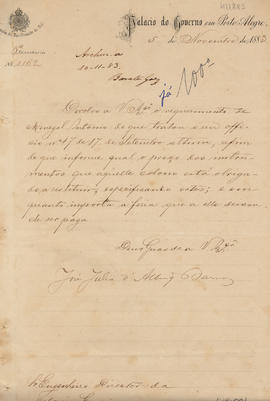 Palacio do Governo em Porto Alegre,
5 de Novembro de 1883
2ª
Nº
Archive-se
10-11-83
já 100$
Devolvo a V. Sª o requerimento de
de que tratou o seu offi-
cio nº 47 de 17 de Setembro ultimo, afim
de que informe qual o preço dos instru-
mentos que aquelle colono está obriga-
do a restituir, especificando estes; e em
quanto importa a feria que a elle deixou
de ser paga.
Deus Guarde a V. Sª
José Julio d'Albuq. Barros
Sr. Engenheiro Director da